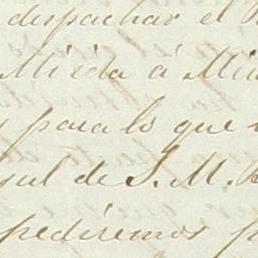 despachar el
Mérida á
para lo que
sul de S. M. B
pediremos p